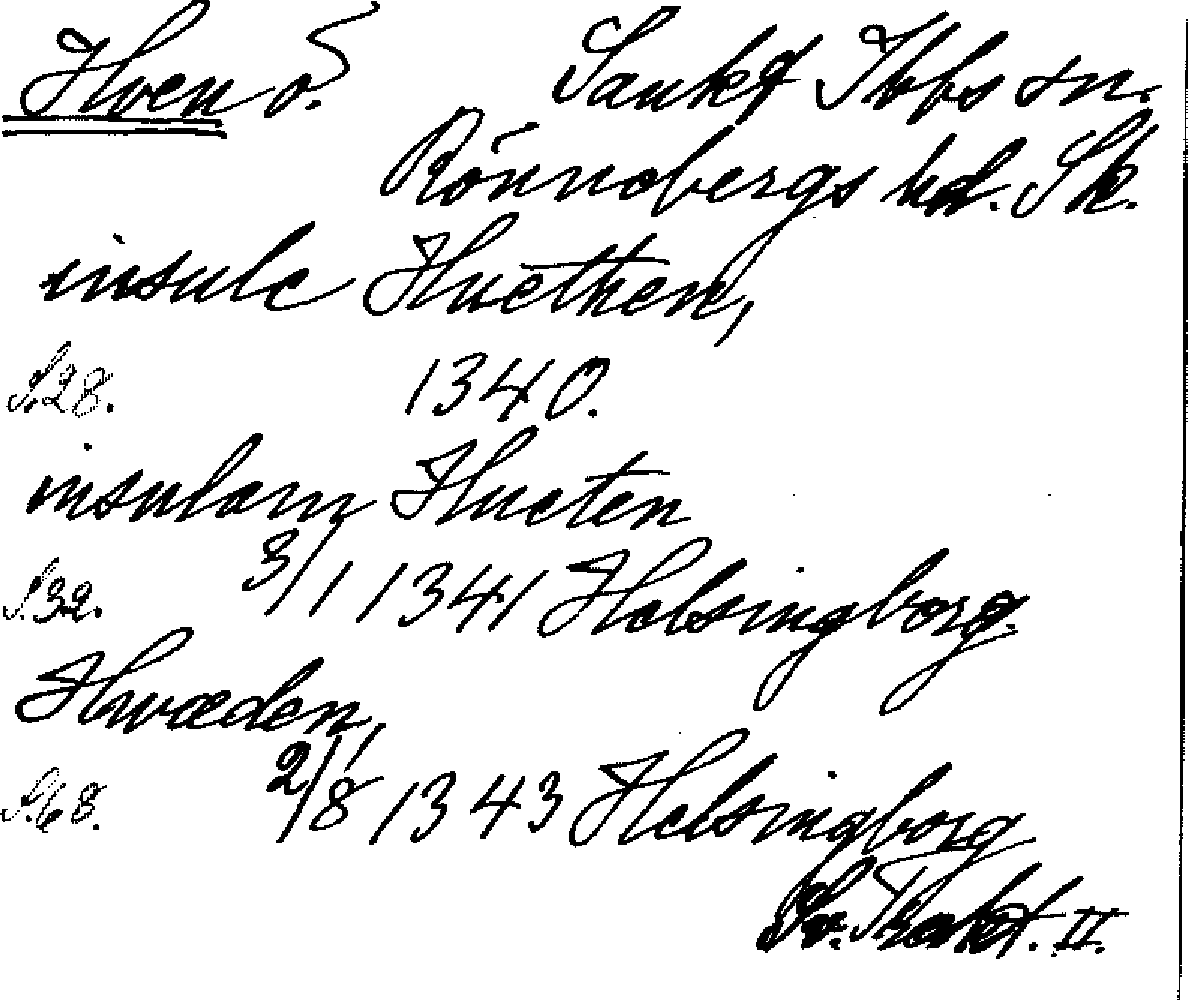 Hven ö. Sankt Ibbs sn.
Rönnebergs hd. Sk.
insule Huethen,
S. 28. 1340.
insulam Hueten
S. 32. 3/1 1341 Helsingborg.
Hwæden,
S. 68. 2/8 1343 Helsingborg
Sv. Trakt. II.